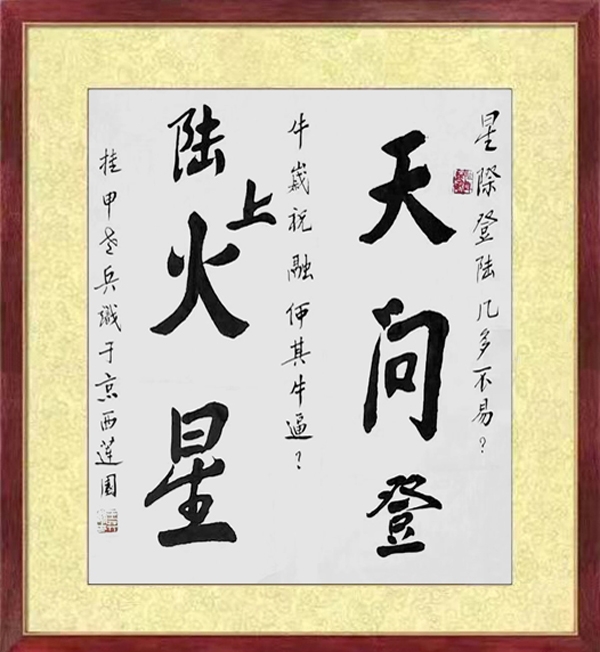 星際登陆几多不易?
天问登
牛嵗祝融何其牛逼?
陆上火星
挂甲老兵識于京西莲園